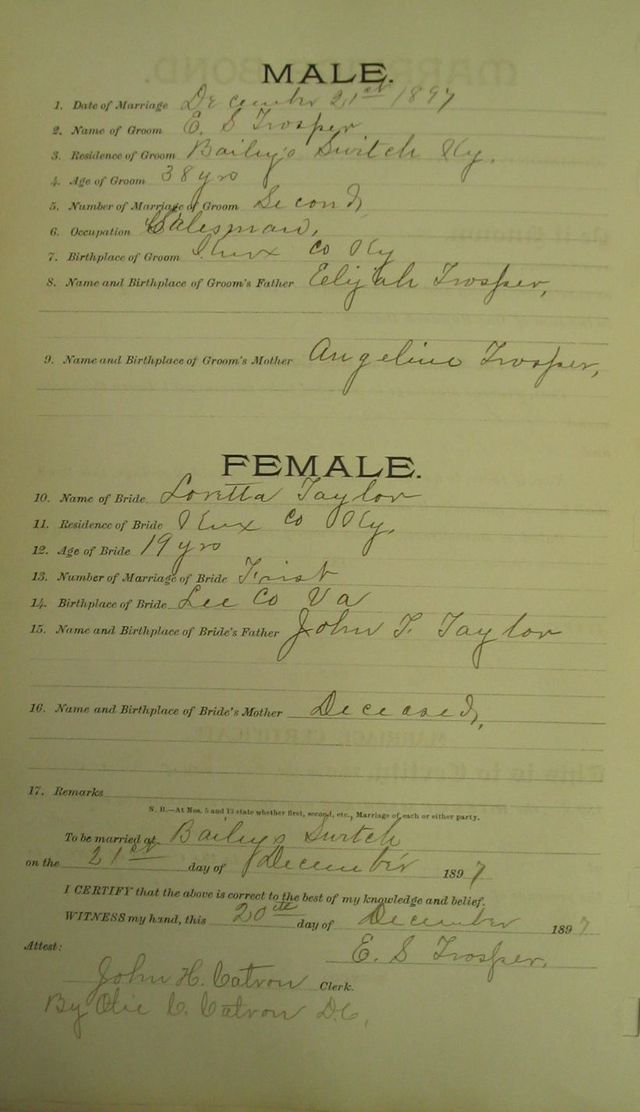 MALE.
1. Date of Marriage December 21st 1897
2. Name of Groom E. S Trosper
3. Residence of Groom Bailey's Switch Ky.
4. Age of Groom 38 yrs
5. Number of Marriage of Groom Second,
6. Occupation Salesman,
7. Birthplace of Groom Knox Co Ky
8. Name and Birthplace of Groom's Father Elijah Trosper,
9. Name and Birthplace of Groom's Mother Angeline Trosper,
FEMALE.
10. Name of Bride Loretta Taylor
11. Residence of Bride Knox Co Ky.
12. Age of Bride 19 yrs
13. Number of Marriage of Bride First
14. Birthplace of Bride Lee Co Va
15. Name and Birthplace of Bride's Father John T. Taylor
16. Name and Birthplace of Bride's Mother Deceased,
17. Remarks
N. B.—At Nos. 5 and 13 state whether first, second, etc., Marriage of each or either party.
To be married at Baileys Switch
on the 21st day of December 1897
I CERTIFY that the above is correct to the best of my knowledge and belief.
WITNESS my hand, this 20th day of December 1897
E. S Trosper.
Attest:
John H. Catron Clerk.
By C. Catron D.C.